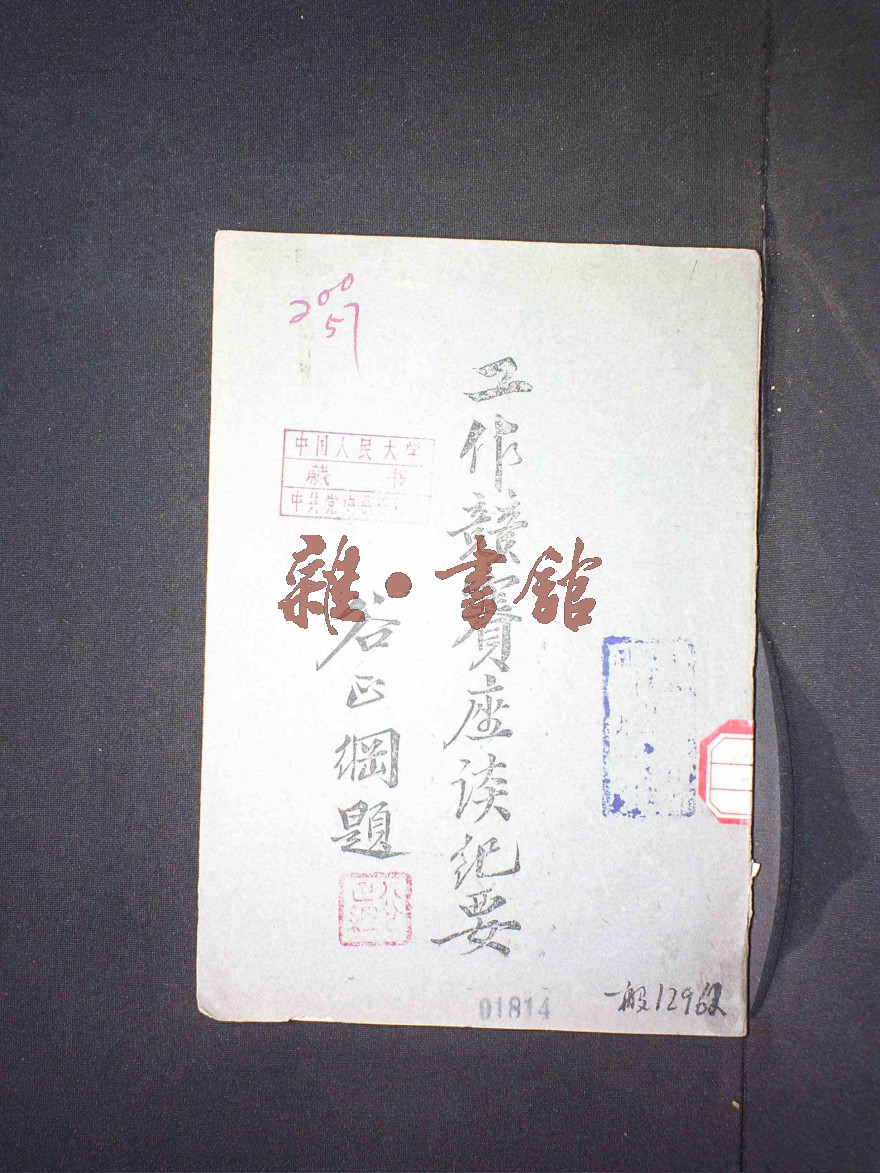 200
57
中国人民大学
藏书
中共党史系
工作競賽座談紀要
谷正綱題
雜·書館
01814